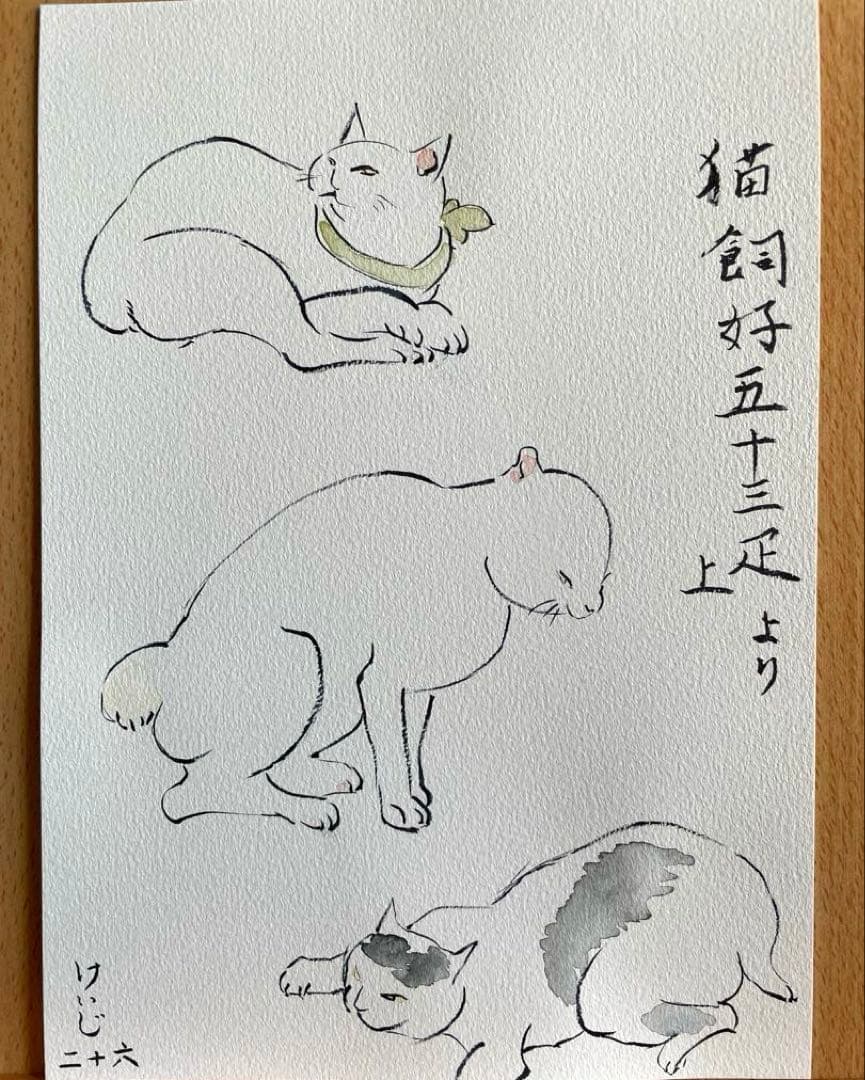 猫飼好五十三疋
上 より
けいじ
二十六